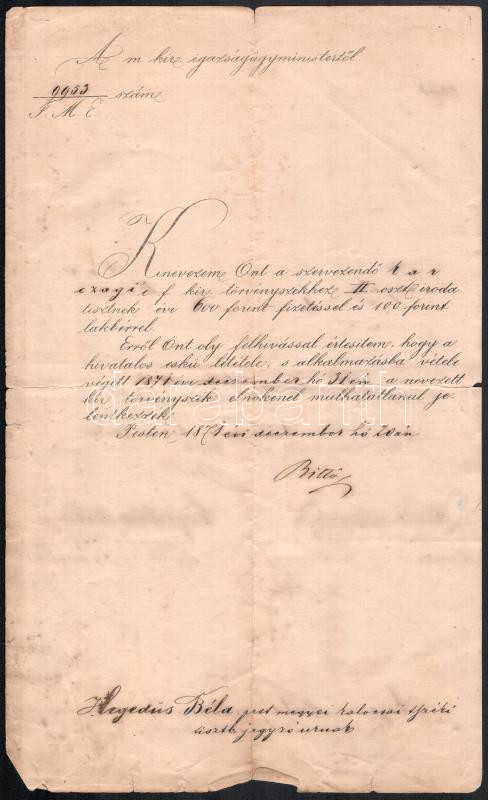 A m kir igazságügyministertől.
9953 szám
I. M. E
Kinevezem Önt a szervezendő kar
czagi e f kir törvényszékhez II oszt iroda
tisztnek évi 600 forint fizetéssel és 100 forint
lakbérrel.
Erről Önt oly felhívással értesitem, hogy a
hivatalos eskü letétele, s alkalmazásba vétele
végett 1871 évi december hó 31én a nevezett
kir törvényszék elnökénél mulhatatlanul je
lentkezzék.
Pesten 1871 évi december hó 20án
Bittó
Hegedüs Béla pest megyei kalocsai
tisztb. jegyző urnak
darabanth